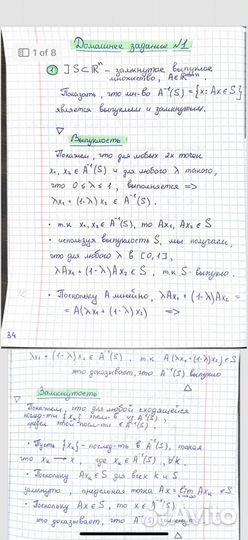 1 of 8
Домашнее задание №1
① ] S⊂ℝⁿ - замкнутое выпуклое
множество, A∈ℝ
Показать, что мн-во A⁻¹(S) = {x: Ax∈S}
является выпуклым и замкнутым.
▽
Выпуклость
Покажем, что для любых 2х точек
x₁, x₂ ∈ A⁻¹(S) и для любого λ такого,
что 0≤λ≤1, выполняется =>
λx₁ + (1-λ)x₂ ∈ A⁻¹(S).
• т.к x₁, x₂ ∈ A⁻¹(S), то Ax₁, Ax₂ ∈ S
• используя выпуклость S, мы получаем,
что для любого λ в [0,1],
λAx₁ + (1-λ)Ax₂ ∈ S, т.к S - выпукло.
• Поскольку A линейно, λAx₁ + (1-λ)Ax₂ =
= A(λx₁ + (1-λ)x₂) =>
34
λx₁ + (1-λ)x₂ ∈ A⁻¹(S). т.к A(λx₁+(1-λ)x₂)∈S
это доказывает, что A⁻¹(S) выпукло
△
Замкнутость
Покажем, что для любой сходящейся
посл-ти {xₖ} из A⁻¹(S),
предел этой посл-ти ∈ A⁻¹(S).
• Пусть {xₖ} - послед-ть в A⁻¹(S), такая
что xₖ → x, где xₖ ∈ A⁻¹(S), ∀k.
• Поскольку Axₖ ∈ S для всех k и S
замкнуто, предельная точка Ax = lim Axₖ ∈ S
• Поскольку Ax ∈ S, то x ∈ A⁻¹(S)
это доказывает, что A⁻¹(S) замкнуто
△
Avito